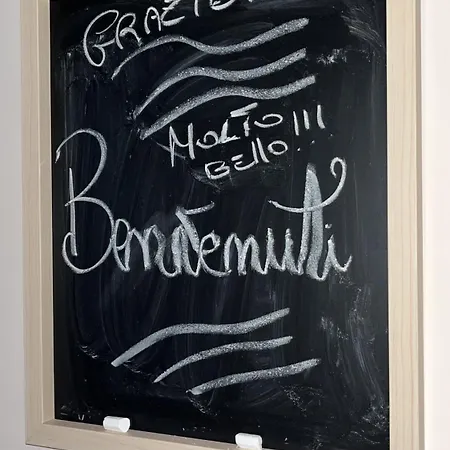 GRAZIE
MOLTO
BELLO!!!
Benvenuti